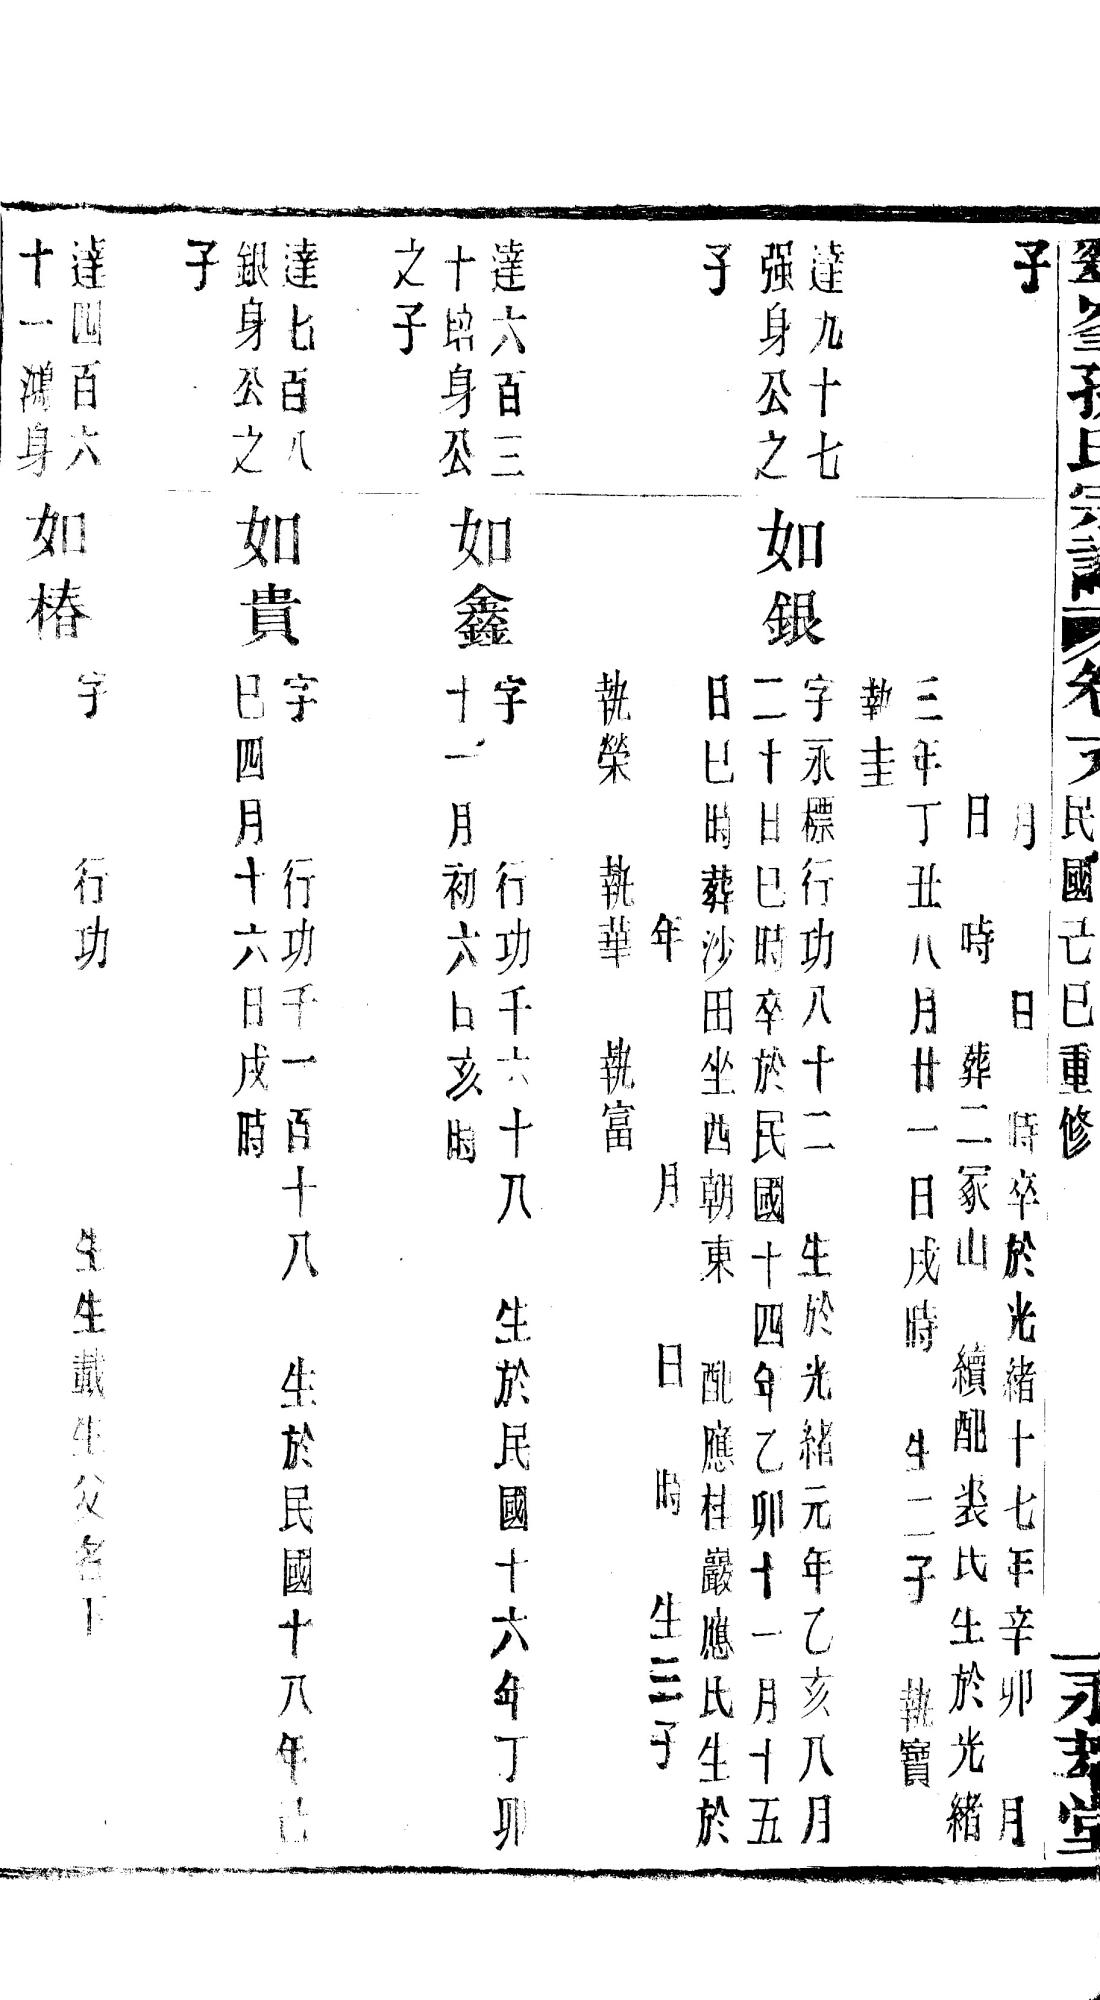 孫氏宗譜 卷 民國己巳重修 永 堂
子
月 日 時卒於光緒十七年辛卯 月
日 時 葬二冢山 續配裘氏生於光緒
三年丁丑八月廿一日戌時 生二子 執寶
執圭
達九十七
强身公之
子
如銀
字永標行功八十二 生於光緒元年乙亥八月
二十日巳時卒於民國十四年乙卯十一月十五
日巳時葬沙田坐西朝東 配應桂巖應氏生於
年 月 日 時 生三子
執榮 執華 執富
達六百三
十 身公
之子
如鑫
字 行功千六十八 生於民國十六年丁卯
十一月初六日亥時
達七百八
銀身公之
子
如貴
字 行功千一百十八 生於民國十八年己
巳四月十六日戌時
達四百六
十一鴻身
如椿
字 行功 生生戴生父名下